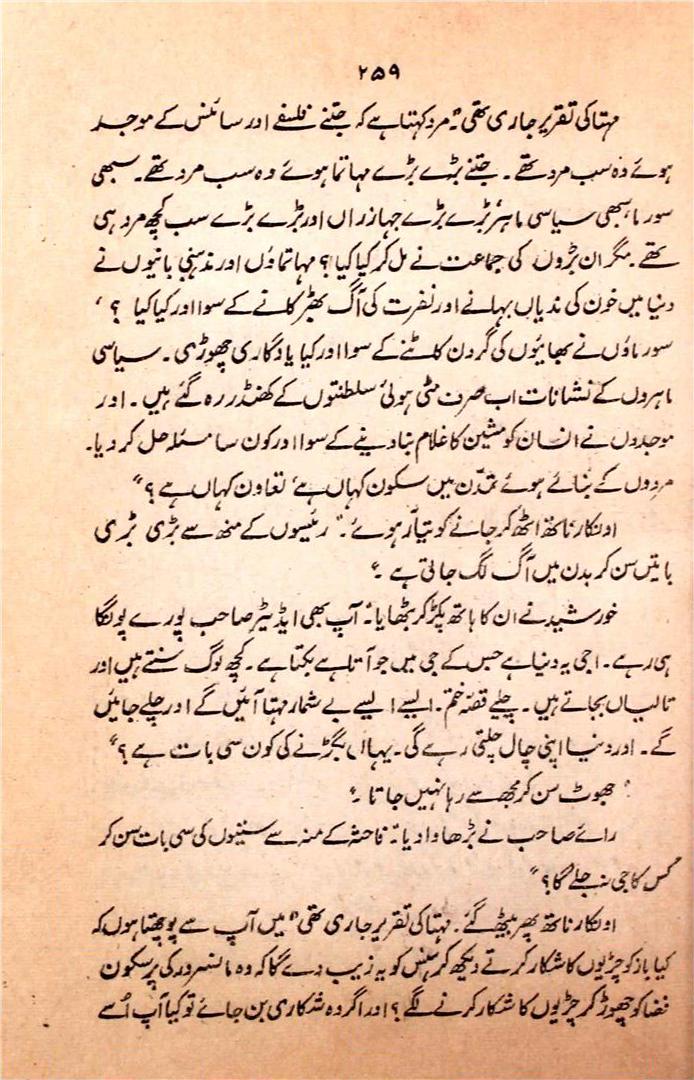 ۲۵۹
مہتا کی تقریر جاری تھی "۔ مرد کہتا ہے کہ جتنے فلسفے اور سائنس کے موجد
ہوئے وہ سب مرد تھے ۔ جتنے بڑے بڑے مہاتما ہوئے وہ سب مرد تھے ۔ سبھی
سورما، سبھی سیاسی ماہر، بڑے بڑے جہازراں اور بڑے بڑے سب کچھ مرد ہی
تھے ۔ مگر ان بڑوں کی جماعت نے مل کر کیا کیا؟ مہاتماؤں اور مذہبی بانیوں نے
دنیا میں خون کی ندیاں بہلانے اور نفرت کی آگ بھڑکانے کے سوا اور کیا کیا ؟ '
سورماؤں نے بھائیوں کی گردن کاٹنے کے سوا اور کیا یادگاری چھوڑی ۔ سیاسی
ماہروں کے نشانات اب صرف مٹی ہوئی سلطنتوں کے کھنڈر رہ گئے ہیں ۔ اور
موجدوں نے انسان کو مشین کا غلام بنا دینے کے سوا اور کون سا مسئلہ حل کر دیا۔
مردوں کے بنائے ہوئے تمدّن میں سکون کہاں ہے، تعاون کہاں ہے ؟"
اونکار ناتھ اٹھ کر جانے کو تیار ہوئے ۔" رئیسوں کے منھ سے بڑی بڑی
باتیں سن کر بدن میں آگ لگ جاتی ہے ۔"
خورشید نے ان کا ہاتھ پکڑ کر بٹھایا ۔" آپ بھی ایڈیٹر صاحب پورے پونگا
ہی رہے ۔ اجی یہ دنیا ہے جس کے جی میں جو آتا ہے بکتا ہے ۔ کچھ لوگ سنتے ہیں اور
تالیاں بجاتے ہیں ۔ چلیے قصّہ ختم ۔ ایسے ایسے بے شمار مہتا آئیں گے اور چلے جائیں
گے ۔ اور دنیا اپنی چال چلتی رہے گی ۔ یہاں بگڑنے کی کون سی بات ہے ؟"
" جھوٹ سن کر مجھ سے رہا نہیں جاتا ۔"
رائے صاحب نے بڑھاوا دیا ۔" فاحشہ کے منہ سے ستیوں کی سی بات سن کر
کس کا جی نہ جلے گا ؟"
اونکار ناتھ پھر بیٹھ گئے ۔ مہتا کی تقریر جاری تھی " میں آپ سے پوچھتا ہوں کہ
کیا باز کو چڑیوں کا شکار کرتے دیکھ کر ہنس کو یہ زیب دے گا کہ وہ مانسرور کی پرسکون
فضا کو چھوڑ کر چڑیوں کا شکار کرنے لگے ؟ اور اگر وہ شکاری بن جائے تو کیا آپ اُسے